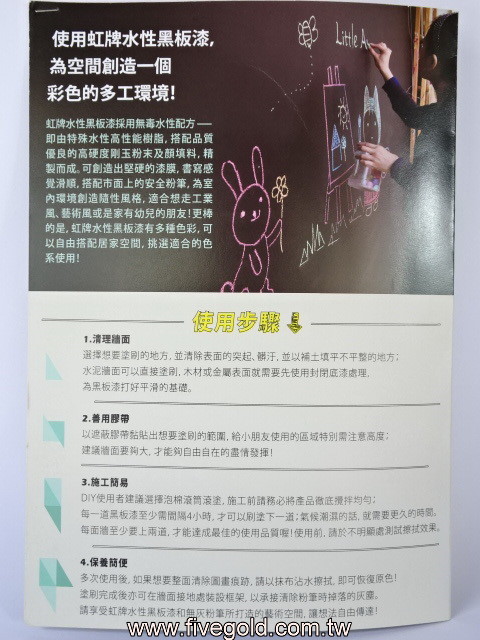 使用虹牌水性黑板漆,
為空間創造一個
彩色的多工環境!
Little A
虹牌水性黑板漆採用無毒水性配方——
即由特殊水性高性能樹脂, 搭配品質
優良的高硬度剛玉粉末及顏填料, 精
製而成。可創造出堅硬的漆膜, 書寫感
覺滑順, 搭配市面上的安全粉筆, 為室
內環境創造隨性風格, 適合想走工業
風、藝術風或是家有幼兒的朋友!更棒
的是, 虹牌水性黑板漆有多種色彩, 可
以自由搭配居家空間, 挑選適合的色
系使用!
使用步驟
1.清理牆面
選擇想要塗刷的地方, 並清除表面的突起、髒汙, 並以補土填平不平整的地方;
水泥牆面可以直接塗刷, 木材或金屬表面就需要先使用封閉底漆處理,
為黑板漆打好平滑的基礎。
2.善用膠帶
以遮蔽膠帶黏貼出想要塗刷的範圍, 給小朋友使用的區域特別需注意高度;
建議牆面要夠大, 才能夠自由自在的盡情發揮!
3.施工簡易
DIY使用者建議選擇泡棉滾筒滾塗, 施工前請務必將產品徹底攪拌均勻;
每一道黑板漆至少需間隔4小時, 才可以刷塗下一道;氣候潮濕的話, 就需要更久的時間。
每面牆至少要上兩道, 才能達成最佳的使用品質喔!使用前, 請於不明顯處測試擦拭效果。
4.保養簡便
多次使用後, 如果想要整面清除圖畫痕跡, 請以抹布沾水擦拭, 即可恢復原色!
塗刷完成後亦可在牆面接地處裝設框架, 以承接清除粉筆時掉落的灰塵。
請享受虹牌水性黑板漆和無灰粉筆所打造的藝術空間, 讓想法自由傳達!
www.fivegold.com.tw